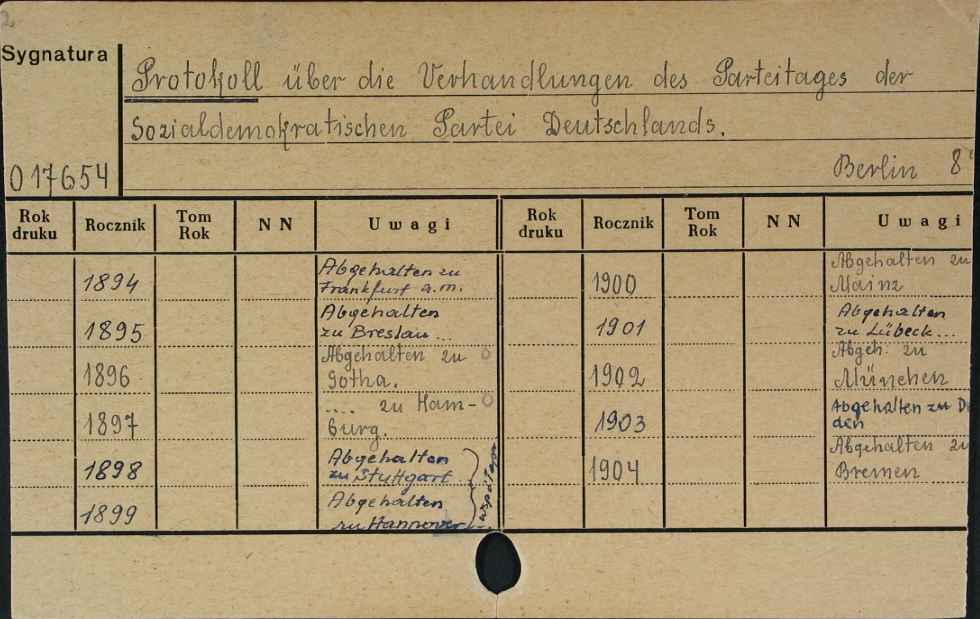 2.
Sygnatura
Protokoll über die Verhandlungen des Parteitages der
Sozialdemokratischen Partei Deutschlands.
017654
Berlin 8°
Rok druku Rocznik Tom Rok N N Uwagi
1894 Abgehalten zu
Frankfurt a.m.
1895 Abgehalten
zu Breslau...
1896 Abgehalten zu
Gotha.
1897 .... zu Ham-
burg.
1898 Abgehalten
zu Stuttgart
1899 Abgehalten
zu Hannover
współopr.
Rok druku Rocznik Tom Rok N N Uwagi
1900 Abgehalten zu
Mainz
1901 Abgehalten
zu Lübeck...
1902 Abgeh. zu
München
1903 Abgehalten zu D
den
1904 Abgehalten zu
Bremen